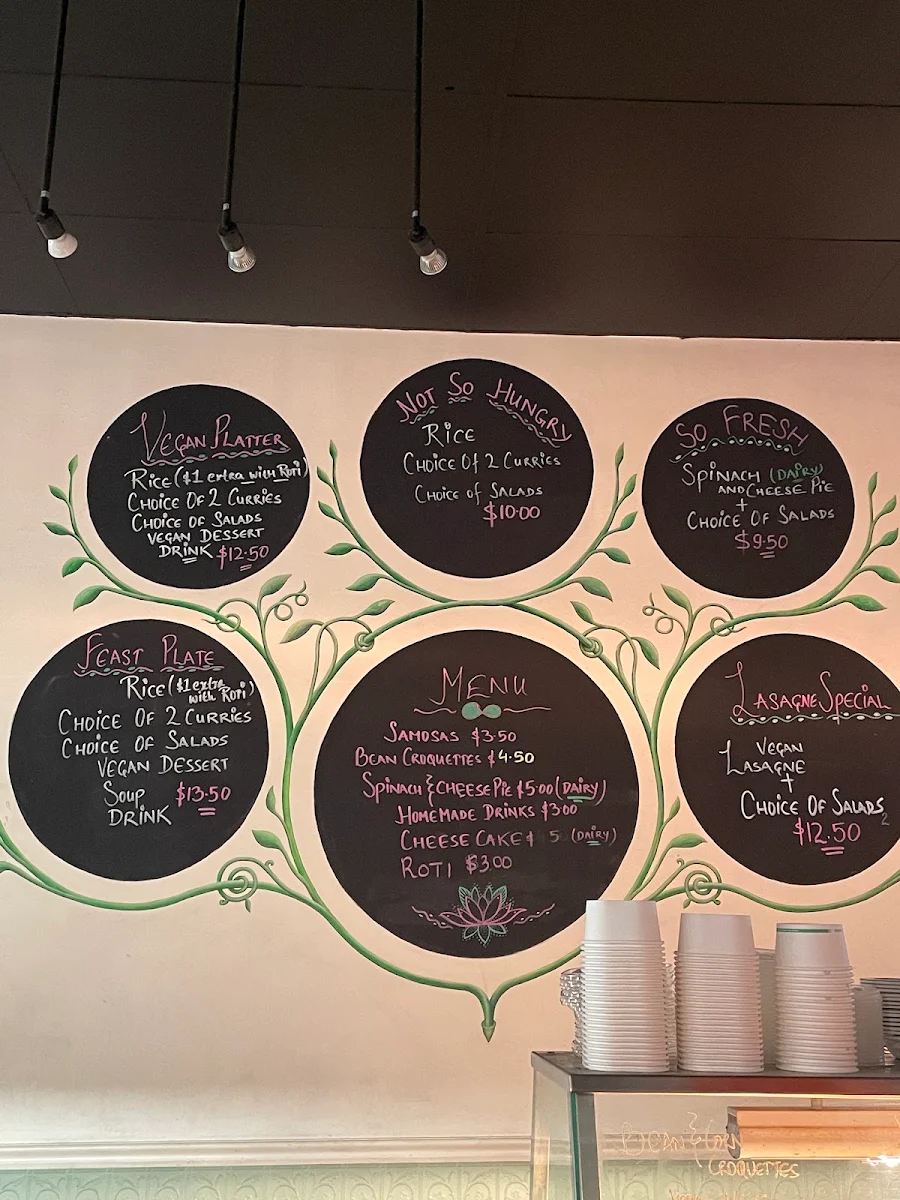 VEGAN PLATTER
RICE ($1 extra with Roti)
CHOICE OF 2 CURRIES
CHOICE OF SALADS
VEGAN DESSERT
DRINK $12.50
NOT SO HUNGRY
RICE
CHOICE OF 2 CURRIES
CHOICE of SALADS
$10.00
SO FRESH
SPINACH (DAIRY)
AND CHEESE PIE
+
CHOICE OF SALADS
$9.50
FEAST PLATE
RICE ($1 extra
with Roti)
CHOICE OF 2 CURRIES
CHOICE OF SALADS
VEGAN DESSERT
SOUP $13.50
DRINK
MENU
SAMOSAS $3.50
BEAN CROQUETTES $4.50
SPINACH & CHEESE PIE $5.00 (DAIRY)
HOMEMADE DRINKS $3.00
CHEESE CAKE $ 5 (DAIRY)
ROTI $3.00
LASAGNE SPECIAL
VEGAN
LASAGNE
+
CHOICE OF SALADS
$12.50
BEAN & CORN
CROQUETTES